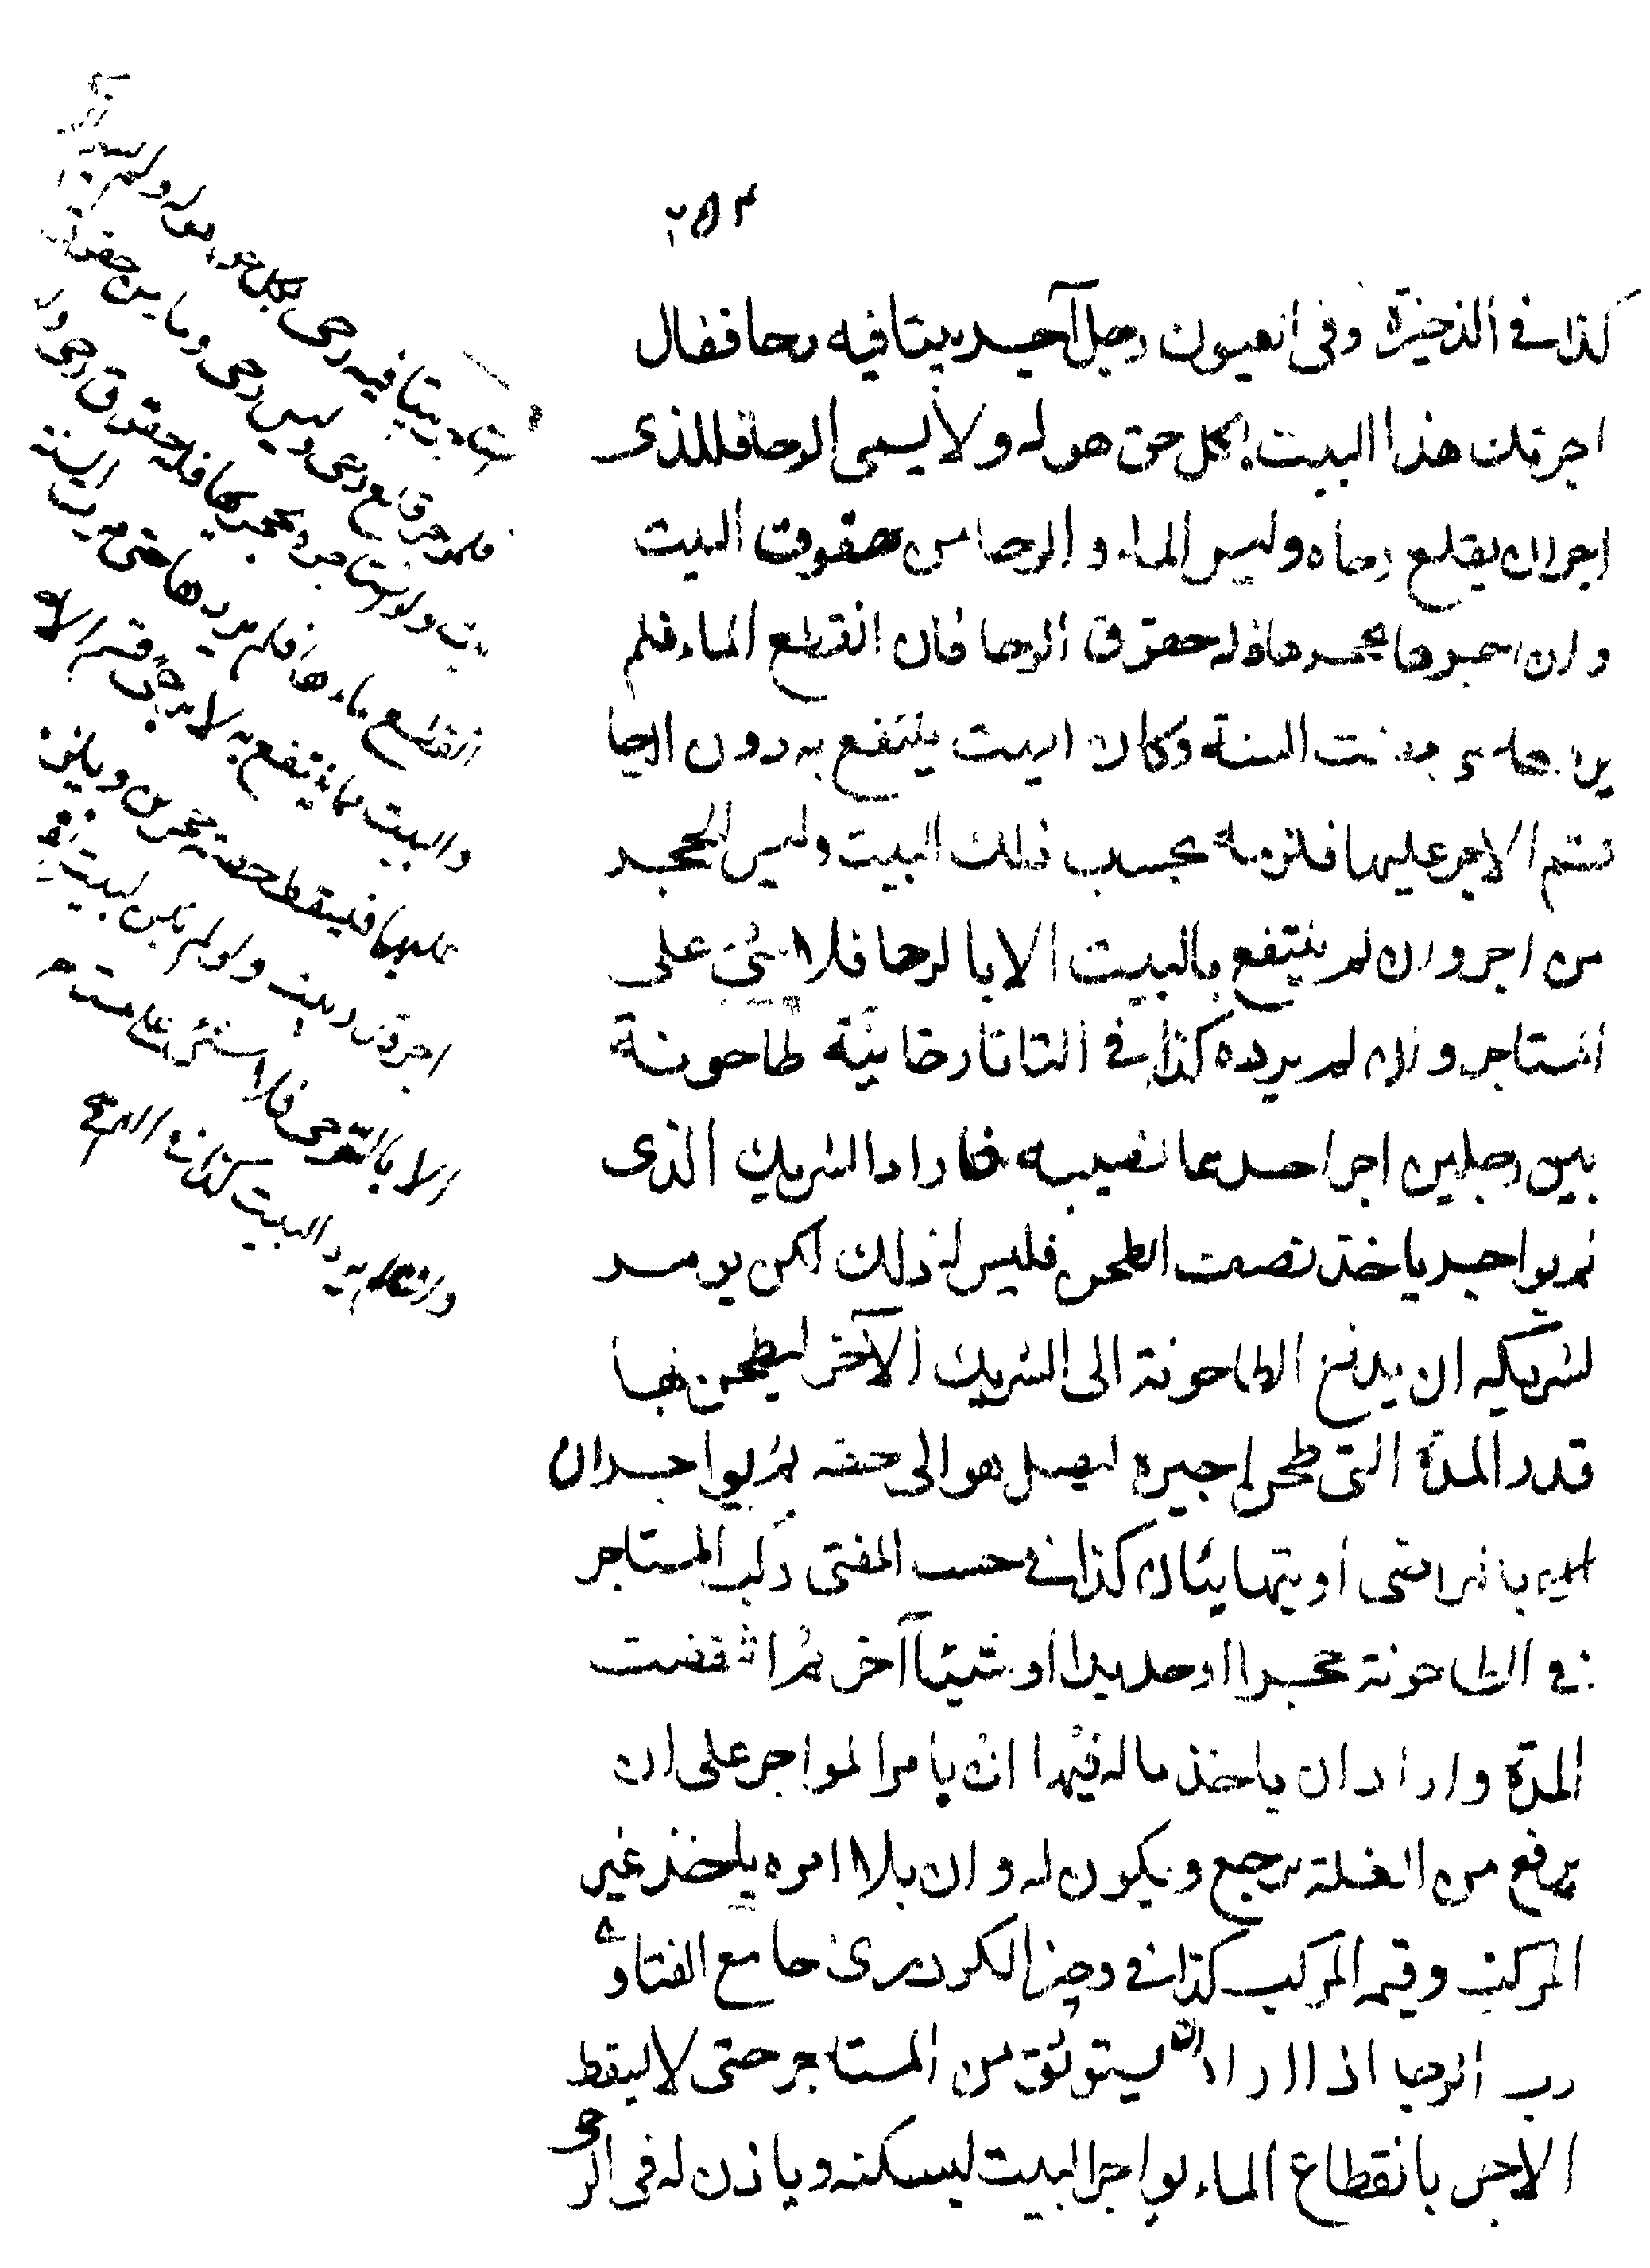 ٢٥٣
كذا في الذخيرة وفي العيون رجل آجر بيتا فيه رحا فقال
اجرتك هذا البيت بكل حق هو له ولا يسمى الرحا فللذى
اجر ان يقلع رحاه وليس الماء والرحا من حقوق البيت
وان اجرها بحجرها فله حقوق الرحا فان انقطع الماء فلم
السنة وكان البيت ينتفع به دون الرحا
قسم الاجر عليها فلزمه بحسب ذلك البيت وليس للحجر
من اجر وان لم ينتفع بالبيت الا بالرحا فلا شئ على
المستاجر وان لم يرده كذا في التاتارخانية طاحونة
بين رجلين اجر احدهما نصيبه فاراد الشريك الذى
لم يواجر ياخذ نصف الطحن فليس له ذلك لكن يومر
لشريكه ان يدفع الطاحونة الى الشريك الآخر ليطحن بها
قدر المدة التى طحن اجيره ليصل هو الى حقه ثم يواجران
بالتراضى او يتهايئان كذا في حسب المفتى ركب المستاجر
في الطاحونة حجرا او حديدا او شيئا آخر ثم انقضت
المدة واراد ان ياخذ ماله فيها ان بامر المواجر على ان
يرفع من الغلة يرجع ويكون له وان بلا امره ياخذ غير
المركب وقيمة المركب كذا في وجيز الكردرى جامع الفتاوى
رب الرحا اذا اراد ان يستوثق من المستاجر حتى لا يسقط
الاجر بانقطاع الماء يواجر البيت ليسكنه وياذن له في الرحى
بيتا فيه رحى بكل حق هو له ولم يسم
فللمؤجر قلع رحى وليس رحى وماء من حقوق
ولو استاجر بحجرها فله حقوق رحى ولو
انقطع ماءها فلم يردها حتى مرت السنة
والبيت مما ينتفع به لا برحى قسم الاجر
عليهما فيسقط حصة حجرين ويلزم
اجر بيت ولو لم يكن لبيت
الا بالرحى فلا شئ على مستاجر
وان لم يرد البيت كذا في